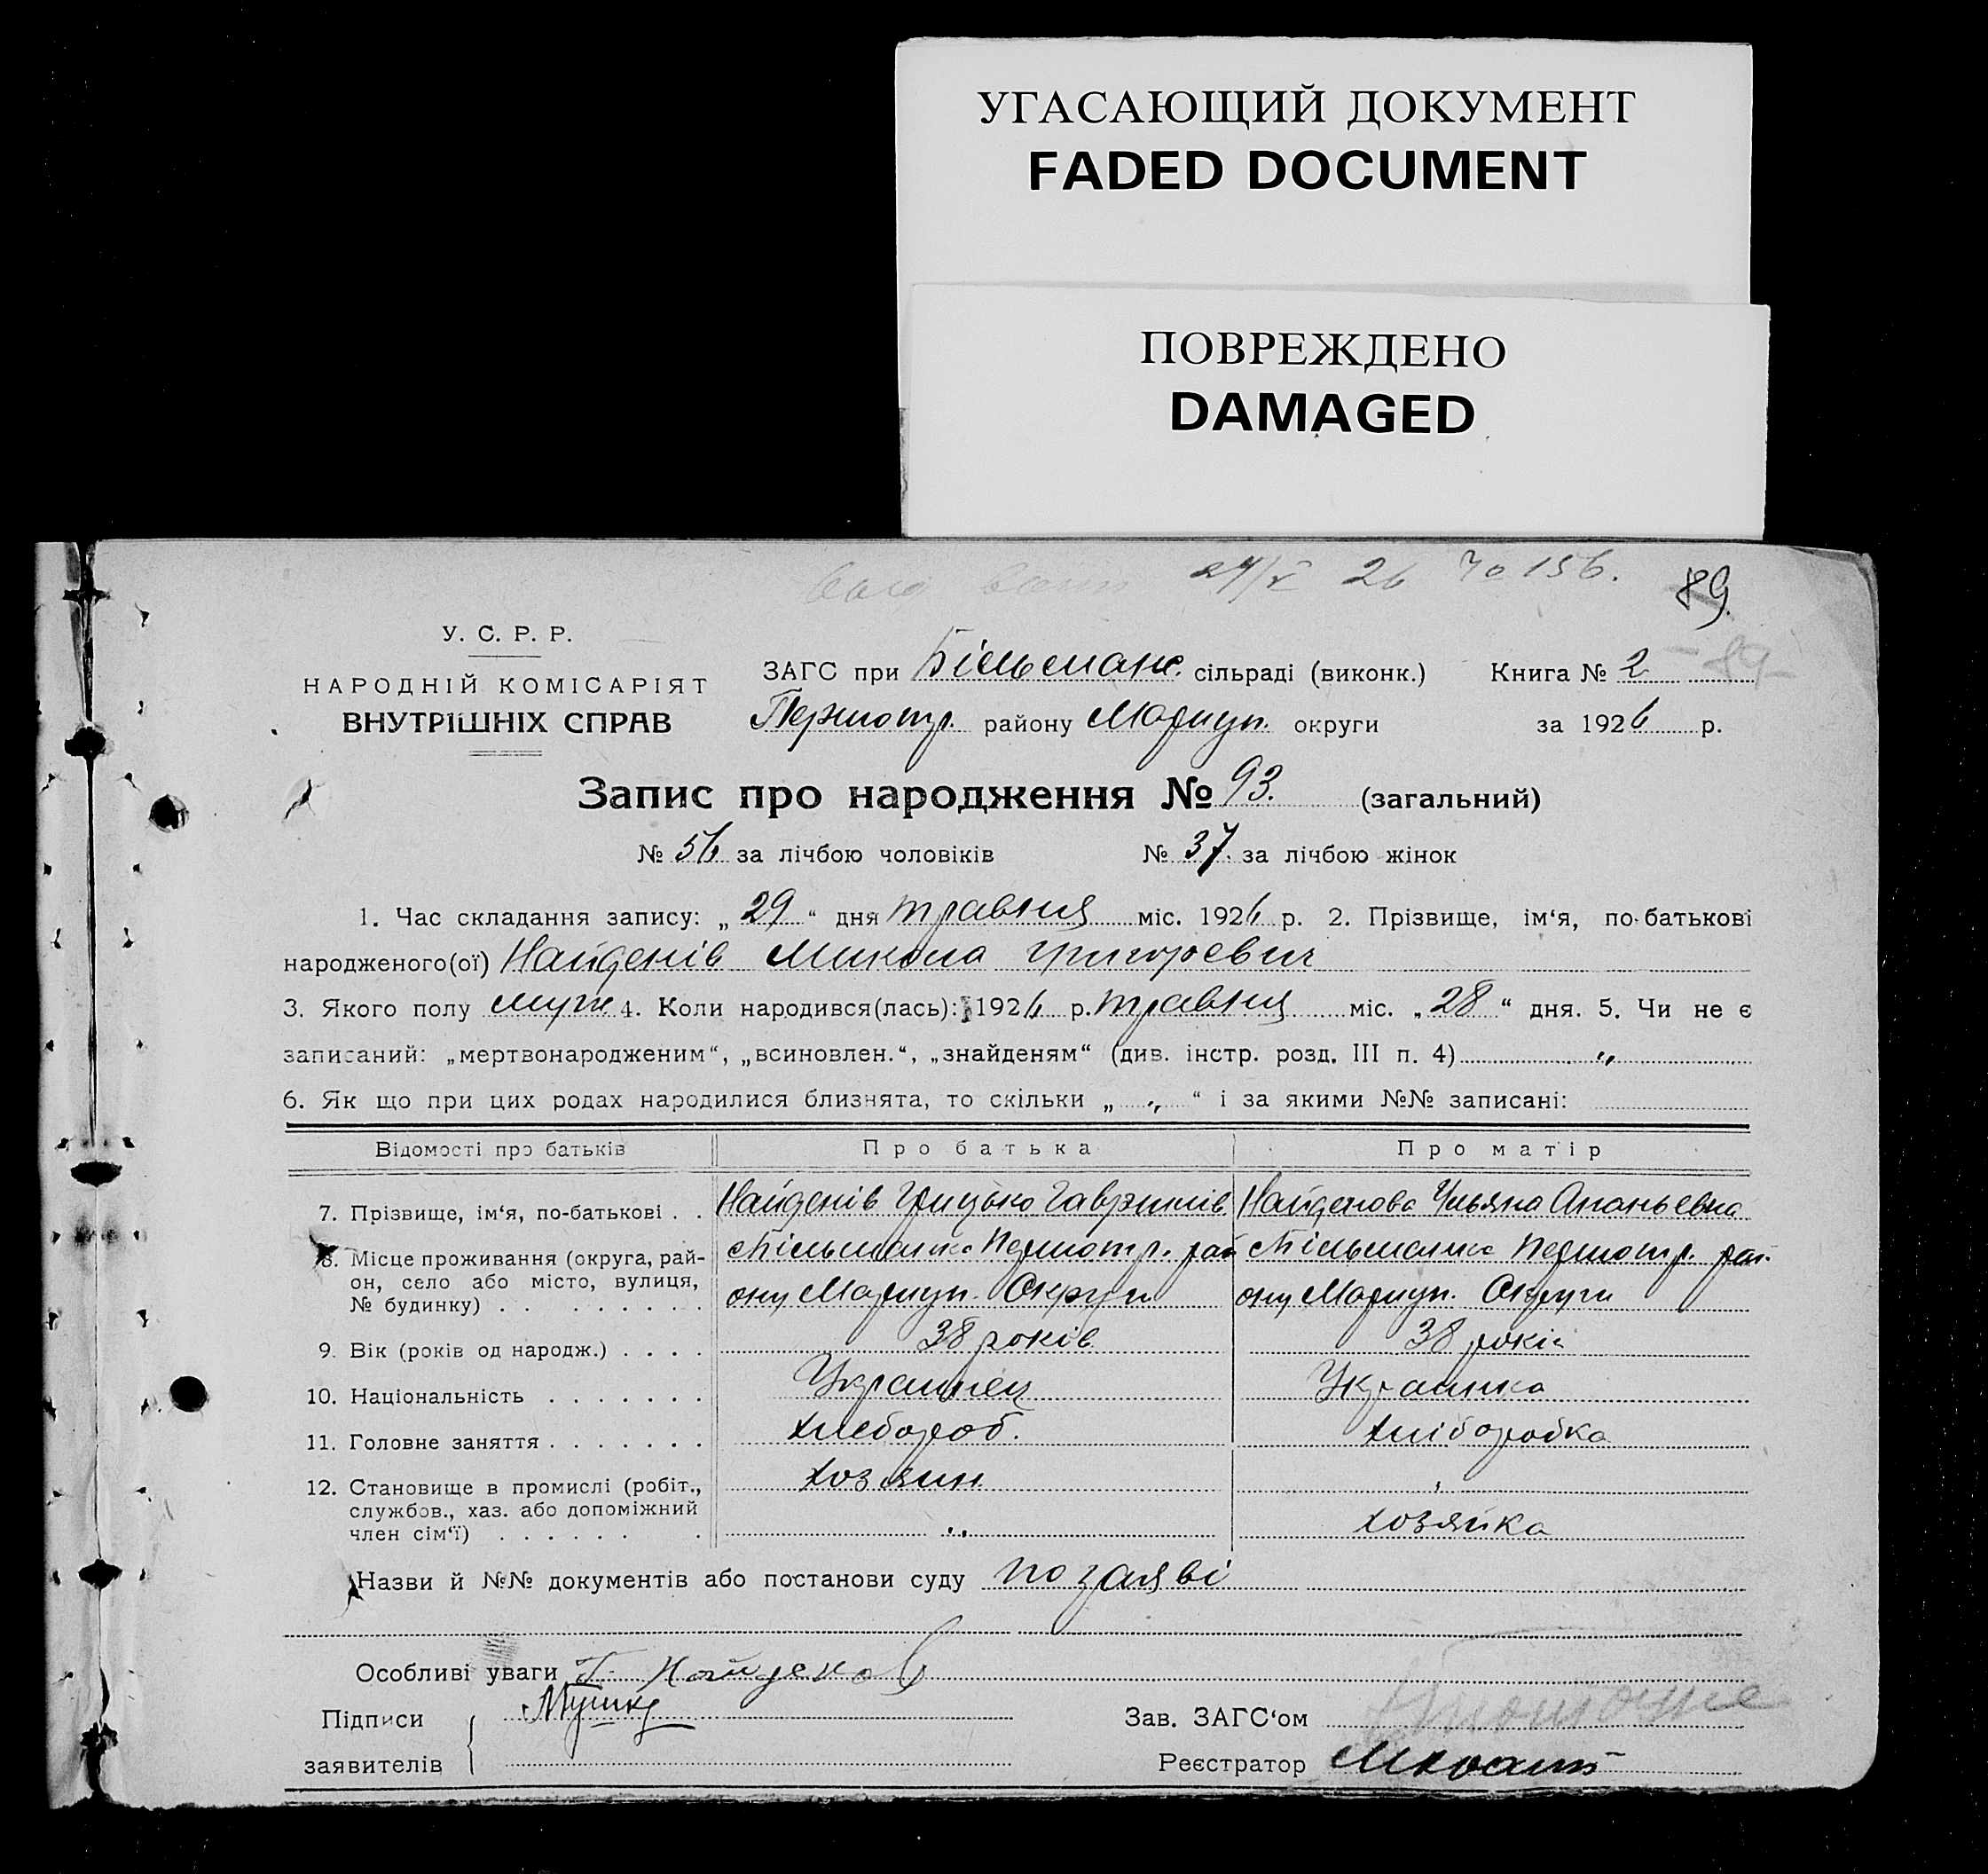 УГАСАЮЩИЙ ДОКУМЕНТ
FADED DOCUMENT
ПОВРЕЖДЕНО
DAMAGED
26 № 156.
89.
89
У. С. Р. Р.
НАРОДНІЙ КОМІСАРІЯТ
ВНУТРІШНІХ СПРАВ
ЗАГС при Більманс. сільраді (виконк.) Книга № 2
Першотр. району Маріуп. округи за 1926 р.
Запис про народження № 93. (загальний)
№ 56 за лічбою чоловіків № 37. за лічбою жінок
1. Час складання запису: „ 29 “ дня травня міс. 1926 р. 2. Прізвище, ім‘я, по-батькові
народженого(ої) Найденів Микола Григорєвич
3. Якого полу муж. 4. Коли народився(лась): 1926 р. травня міс. „ 28 “ дня. 5. Чи не є
записаний: „мертвонародженим“, „всиновлен.“, „знайденям“ (див. інстр. розд. III п. 4) „
6. Як що при цих родах народилися близнята, то скільки „ „ “ і за якими №№ записані:
Відомості про батьків Про батька Про матір
7. Прізвище, ім‘я, по-батькові . . Найденів Грицько Гаврилів Найденова Ульяна Ананьевна
8. Місце проживання (округа, рай- Більманка Першотр. рай Більманка Першотр. рай
он, село або місто, вулиця, ону Маріуп. Округи ону Маріуп. Округи
№ будинку) . . . . . . . . .
9. Вік (років од народж.) . . . . 38 років 38 років
10. Національність . . . . . . . Украинец Украинка
11. Головне заняття . . . . . . . Хлебороб. Хліборобка
12. Становище в промислі (робіт., Хозяин „
службов., хаз. або допоміжний „ хозяйка
член сім‘ї) . . . . . . .
Назви й №№ документів або постанови суду по заяві
Особливі уваги Г. Найденов
Підписи
Зав. ЗАГС‘ом
заявителів Реєстратор